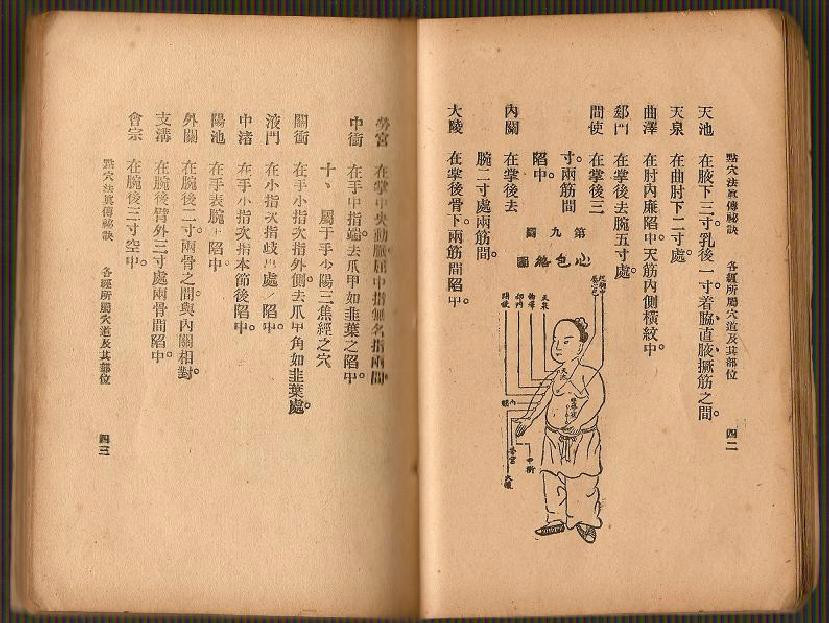 點穴法眞傳祕訣　各經所屬穴道及其部位　四二
天池　在腋下三寸乳後一寸着脇直腋撅筋之間。
天泉　在曲肘下二寸處。
曲澤　在肘內廉陷中。大筋內側橫紋中。
郄門　在掌後去腕五寸處。
間使　在掌後三
寸。兩筋間
陷中。
內關　在掌後去
腕二寸處兩筋間。
大陵　在掌後骨下。兩筋間陷中。
第九圖
心包絡圖
天池
中衝
勞宮　在掌中央動脈。屈中指無名指兩間
中衝　在手中指端。去爪甲如韭葉之陷中。
十、屬于手少陽三焦經之穴
關衝　在手小指次指外側。去爪甲角如韭葉處。
液門　在小指次指歧骨處陷中。
中渚　在手小指次指本節後陷中。
陽池　在手表腕上陷中。
外關　在腕後二寸。兩骨之間。與內關相對。
支溝　在腕後臂外三寸處兩骨間陷中。
會宗　在腕後三寸空中。
點穴法眞傳祕訣　各經所屬穴道及其部位　四三